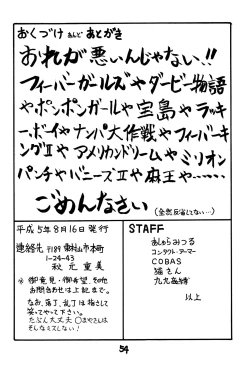 おくづけ あんど あとがき
おれが悪いんじゃない!!
フィーバーガールズやダービー物語
やポンポンガールや宝島やラッキ
ーボーイやナンパ大作戦やフィーバーキ
ングIIやアメリカンドリームやミリオン
パンチやバニーズIIや麻王や……
ごめんなさい
(全然反省してない…)
平成5年8月16日発行
連絡先 〒189 東村山市本町
1-24-43
秋元重美
※ 御意見・御希望、その他
お問合わせは上記まで。
なお、落丁、乱丁は指さして
笑ってやって下さい。
たぶん大丈夫
そんなミスしない!
STAFF
あしゅらみつる
コンタクト・アーマー
COBAS
猫さん
以上
54